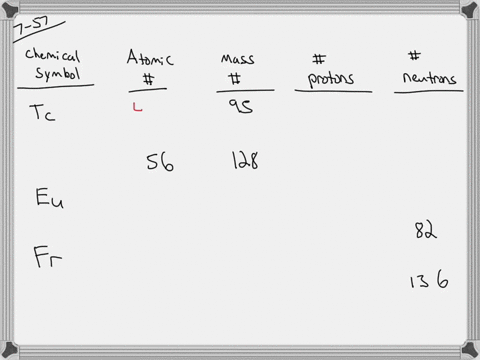 7-57
Chemical Symbol Atomic # Mass # # protons # neutrons
Tc 95
56 128
Eu 82
Fr 136